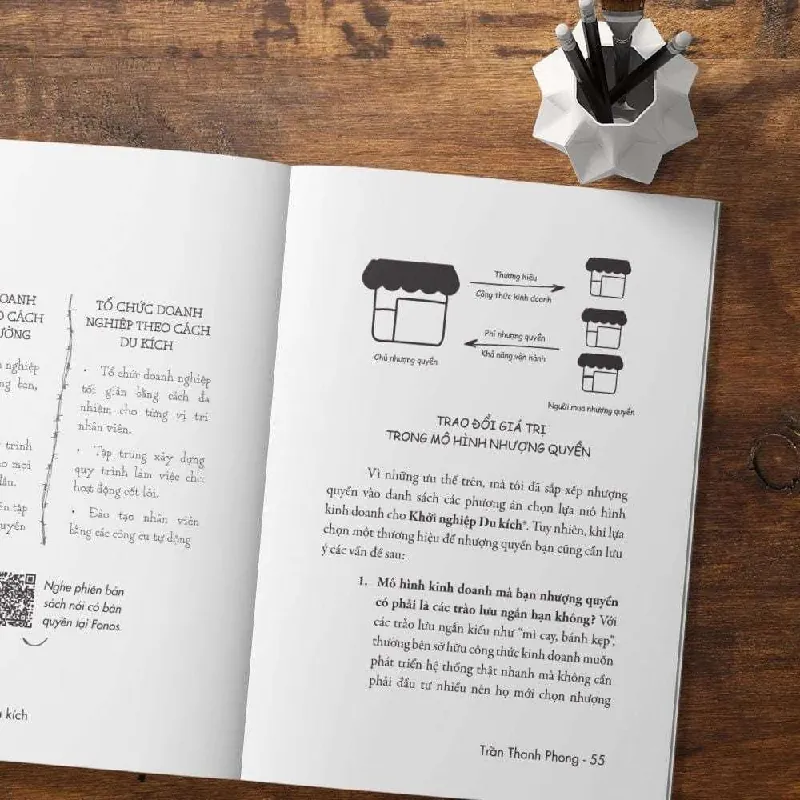 OANH
O CÁCH
ƯỜNG
nghiệp
ng ban,
trình
ho mọi
đầu.
ến tập
uyên
TỔ CHỨC DOANH
NGHIỆP THEO CÁCH
DU KÍCH
• Tổ chức doanh nghiệp
tối giản bằng cách đa
nhiệm cho từng vị trí
nhân viên.
• Tập trung xây dựng
quy trình làm việc cho
hoạt động cốt lõi.
• Đào tạo nhân viên
bằng các công cụ tự động
Nghe phiên bản
sách nói có bản
quyền tại Fonos.
kích
Thương hiệu
Công thức kinh doanh
Phí nhượng quyền
Khả năng vận hành
Chủ nhượng quyền
Người mua nhượng quyền
TRAO ĐỔI GIÁ TRỊ
TRONG MÔ HÌNH NHƯỢNG QUYỀN
Vì những ưu thế trên, mà tôi đã sắp xếp nhượng
quyền vào danh sách các phương án chọn lựa mô hình
kinh doanh cho Khởi nghiệp Du kích®. Tuy nhiên, khi lựa
chọn một thương hiệu để nhượng quyền bạn cũng cần lưu
ý các vấn đề sau:
1. Mô hình kinh doanh mà bạn nhượng quyền
có phải là các trào lưu ngắn hạn không? Với
các trào lưu ngắn kiểu như "mì cay, bánh kẹp",
thường bên sở hữu công thức kinh doanh muốn
phát triển hệ thống thật nhanh mà không cần
phải đầu tư nhiều nên họ mới chọn nhượng
Trần Thanh Phong - 55